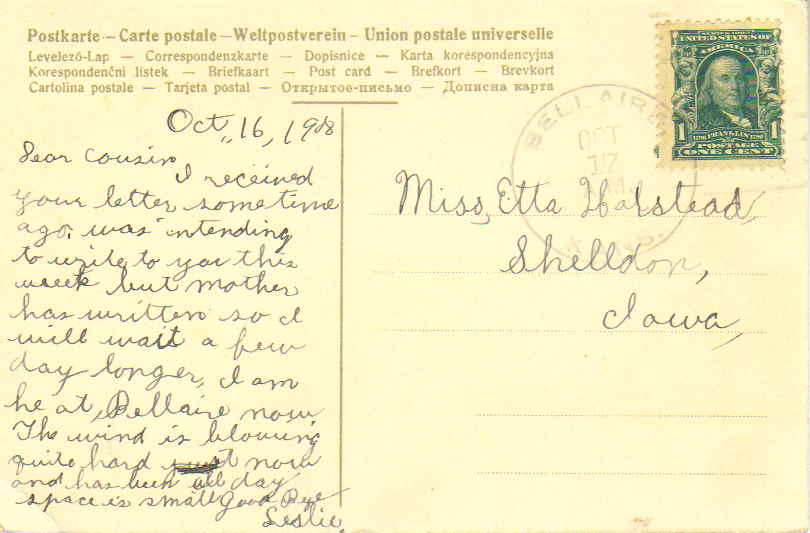 Postkarte – Carte postale – Weltpostverein – Union postale universelle
Levelező-Lap — Correspondenzkarte — Dopisnice — Karta korespondencyjna
Korespondenční lístek — Briefkaart — Post card — Brefkort — Brevkort
Cartolina postale — Tarjeta postal — Открытое-письмо — Дописна карта
Oct,, 16, 1908
Dear Cousin
I received
your letter sometime
ago. was intending
to write to you this
week but mother
has written so I
will wait a few
day longer, I am
he at, Bellaire now
The wind is blowing
quite hard just now
and has been all day
space is small Good Bye
Leslie.
BELLAIRE
OCT
17
UNITED STATES OF
AMERICA
1
FRANKLIN
1
POSTAGE
ONE CENT
Miss, Etta Halstead,
Shelldon,
Iowa,